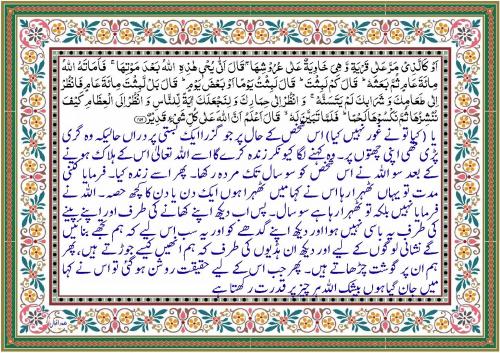 اَوْ كَالَّذِىْ مَرَّ عَلٰى قَرْيَةٍ وَّ هِىَ خَاوِيَةٌ عَلٰى عُرُوْشِهَا ۚ قَالَ اَنّٰى يُحْىٖ هٰذِهِ اللّٰهُ بَعْدَ مَوْتِهَا ۚ فَاَمَاتَهُ اللّٰهُ
مِائَةَ عَامٍ ثُمَّ بَعَثَهٗ ؕ قَالَ كَمْ لَبِثْتَ ؕ قَالَ لَبِثْتُ يَوْمًا اَوْ بَعْضَ يَوْمٍ ؕ قَالَ بَلْ لَّبِثْتَ مِائَةَ عَامٍ فَانْظُرْ
اِلٰى طَعَامِكَ وَ شَرَابِكَ لَمْ يَتَسَنَّهْ ۚ وَ انْظُرْ اِلٰى حِمَارِكَ وَ لِنَجْعَلَكَ اٰيَةً لِّلنَّاسِ وَ انْظُرْ اِلَى الْعِظَامِ كَيْفَ
نُنْشِزُهَا ثُمَّ نَكْسُوْهَا لَحْمًا ؕ فَلَمَّا تَبَيَّنَ لَهٗ ۙ قَالَ اَعْلَمُ اَنَّ اللّٰهَ عَلٰى كُلِّ شَىْءٍ قَدِيْرٌ ﴿۲۵۹﴾
یا (کیا تو نے غور نہیں کیا) اس شخص کے حال پر جو گزرا ایک بستی پر دراں حالیکہ وہ گری
پڑی تھی اپنی چھتوں پر۔ وہ کہنے لگا کیونکر زندہ کرے گا اسے اللہ تعالیٰ اس کے ہلاک ہونے
کے بعد سو اللہ نے اس شخص کو سو سال تک مردہ رکھا۔ پھر اسے زندہ کیا۔ فرمایا کتنی
مدت تو یہاں ٹھہرا رہا اس نے کہا میں ٹھہرا ہوں ایک دن یا دن کا کچھ حصہ۔ اللہ نے
فرمایا نہیں بلکہ تو ٹھہرا ہے سو سال۔ پس اب دیکھ اپنے کھانے کی طرف اور اپنے پینے
کی طرف یہ باسی نہیں ہوا اور دیکھ اپنے گدھے کو اور یہ سب اس لیے کہ ہم تجھے بنائیں
گے نشانی لوگوں کے لیے اور دیکھ ان ہڈیوں کی طرف کہ ہم انھیں کیسے جوڑتے ہیں، پھر
ہم ان پر گوشت چڑھاتے ہیں۔ پھر جب اس کے لیے حقیقت روشن ہو گئی تو اس نے کہا
میں جان گیا ہوں بیشک اللہ ہر چیز پر قدرت رکھتا ہے